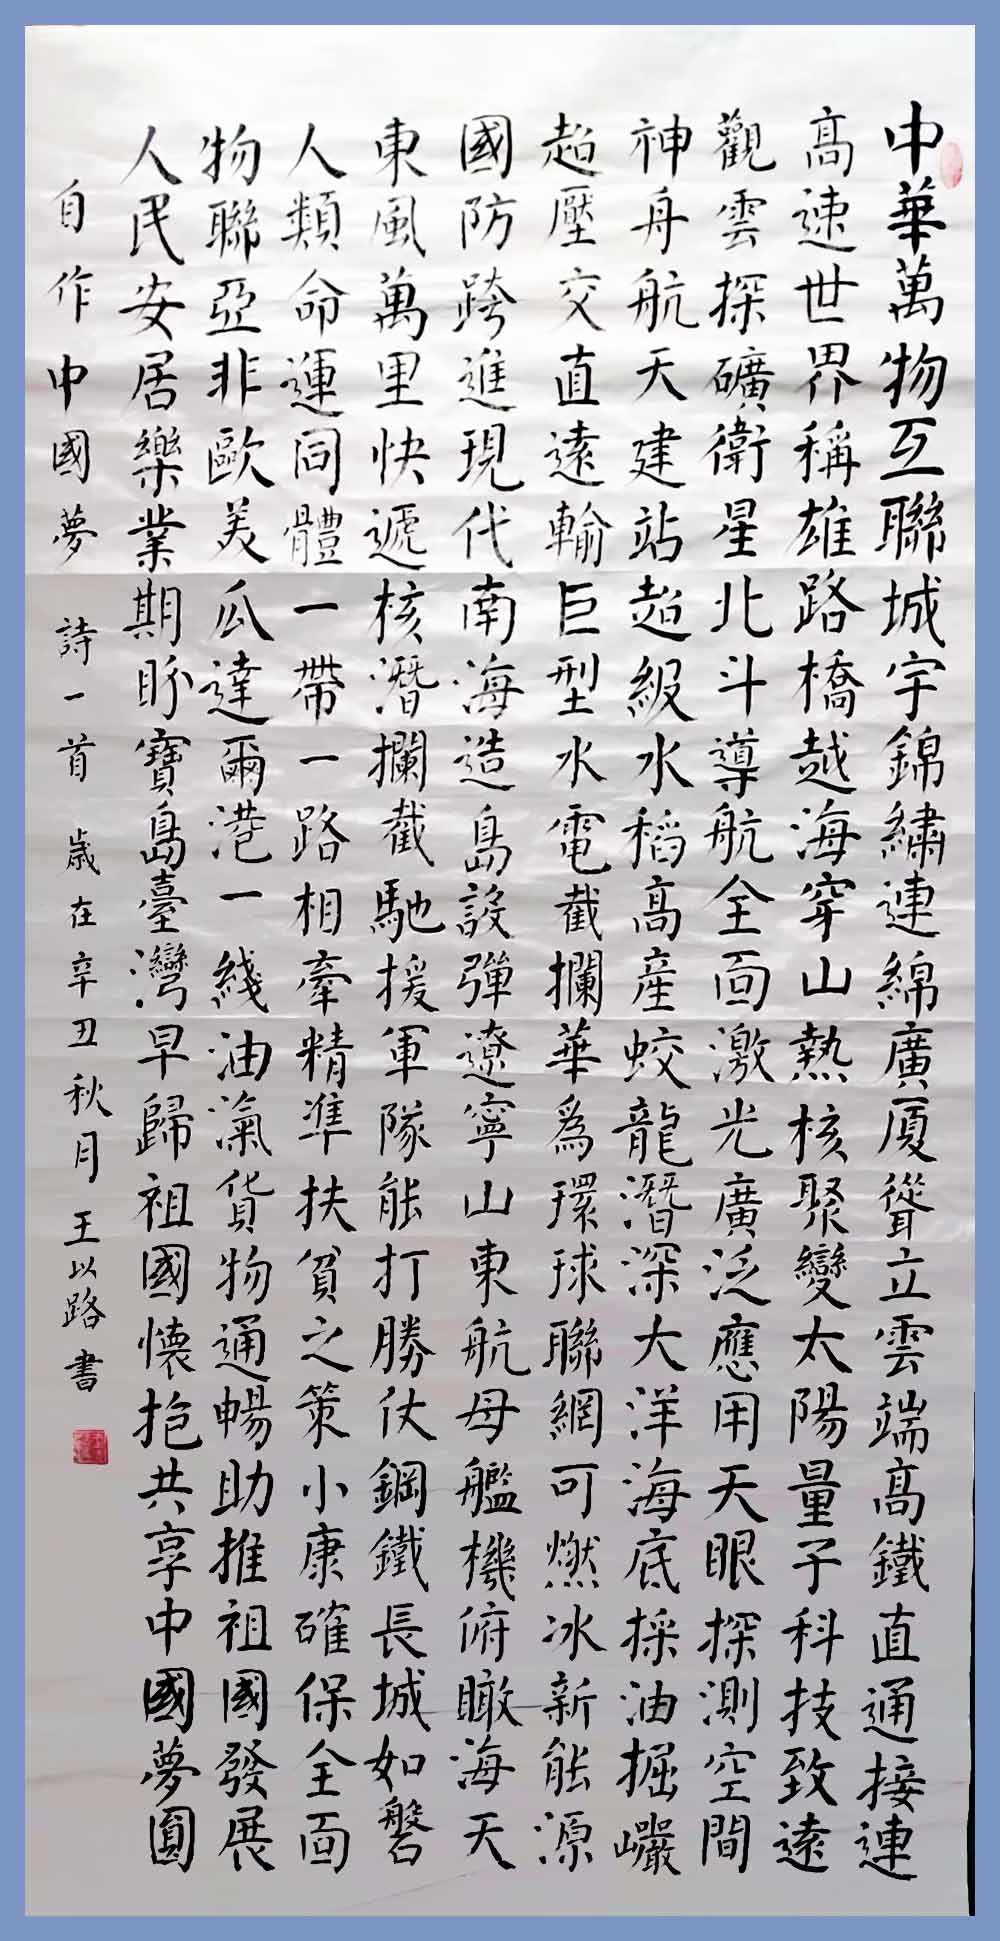 中華萬物互聯城宇錦繡連綿廣厦聳立雲端高鐵直通接連
高速世界稱雄路橋越海穿山熱核聚變太陽量子科技致遠
觀雲探礦衛星北斗導航全面激光廣泛應用天眼探測空間
神舟航天建站超級水稻高産蛟龍潛深大洋海底採油掘巖
超壓交直遠輸巨型水電截攔華爲環球聯網可燃冰新能源
國防跨進現代南海造島設彈遼寧山東航母艦機俯瞰海天
東風萬里快遞核潛攔截馳援軍隊能打勝仗鋼鐵長城如磐
人類命運同體一帶一路相牽精準扶貧之策小康確保全面
物聯亞非歐美瓜達爾港一綫油氣貨物通暢助推祖國發展
人民安居樂業期盼寶島臺灣早歸祖國懷抱共享中國夢圓
自作中國夢 詩一首 歲在辛丑秋月王以路書